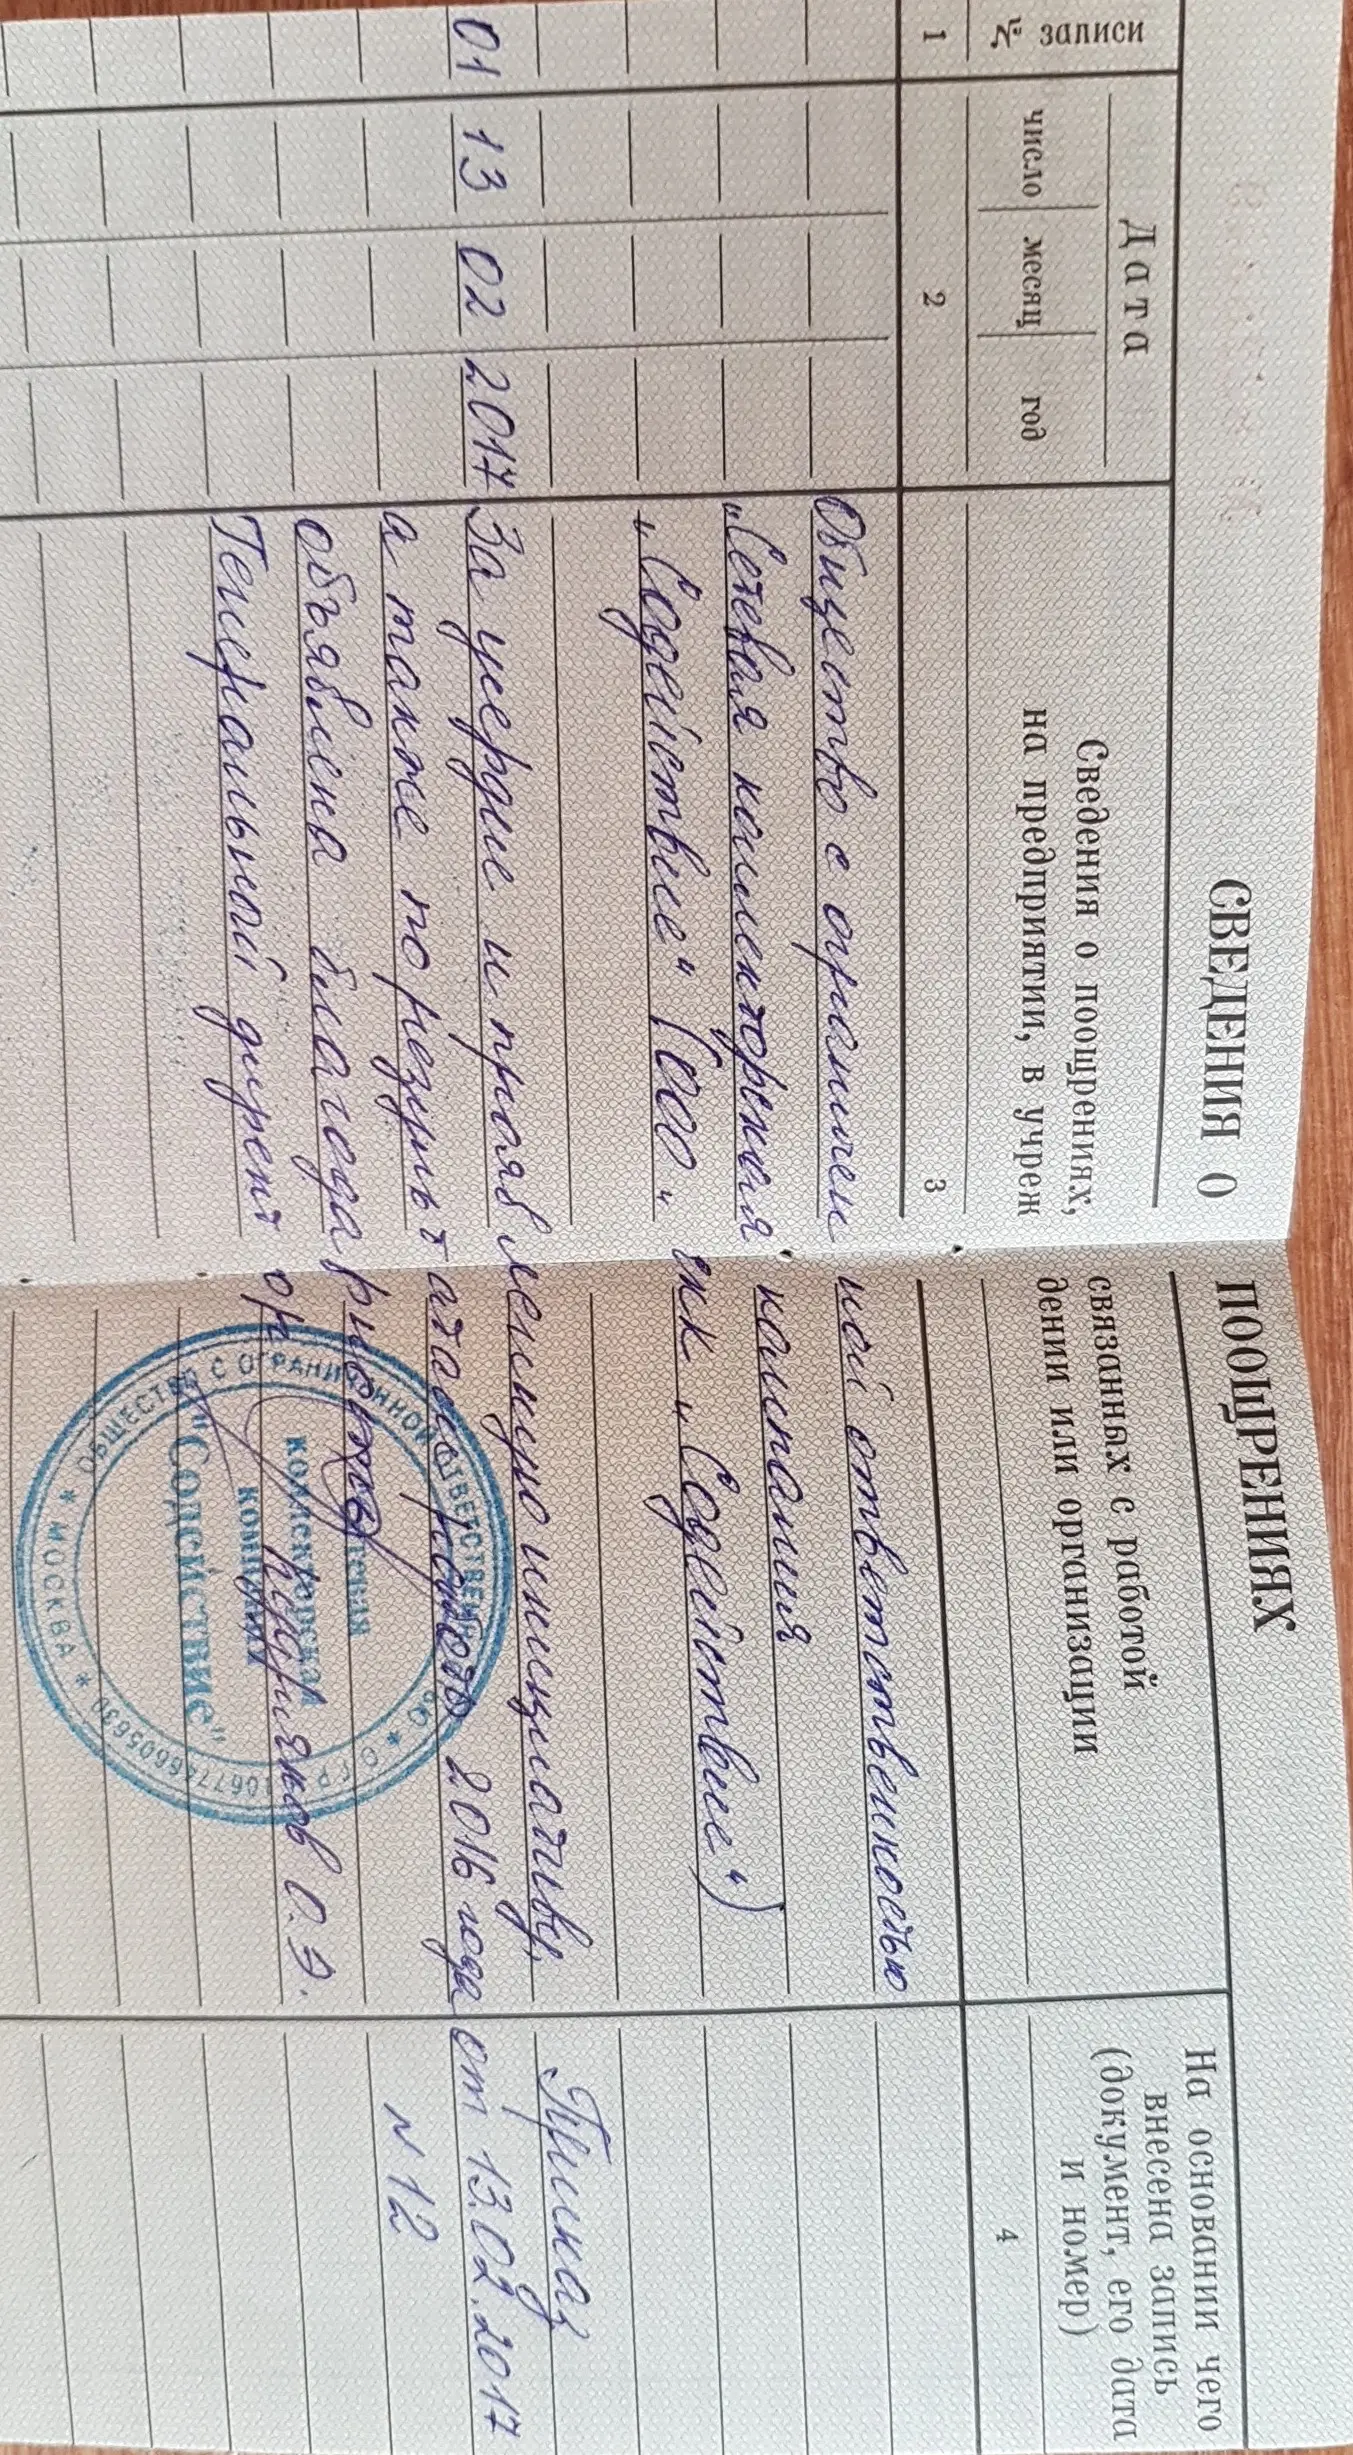 СВЕДЕНИЯ О ПООЩРЕНИЯХ
№ записи
Дата
число месяц год
Сведения о поощрениях, связанных с работой
на предприятии, в учреждении или организации
На основании чего
внесена запись
(документ, его дата
и номер)
1 2 3 4
Общество с ограниченной ответственностью
„Сетевая коллекторская компания
„Содействие“ (ООО „СКК „Содействие“)
01 13 02 2017 За усердие и проявленную инициативу, Приказ
а также по результатам работы 2016 года от 13.02.2017
объявлена благодарность N 12
Генеральный директор О.Э.
ОБЩЕСТВО С ОГРАНИЧЕННОЙ ОТВЕТСТВЕННОСТЬЮ * ОГРН 1067746605630
* МОСКВА *
Сетевая
коллекторская
компания
"Содействие"